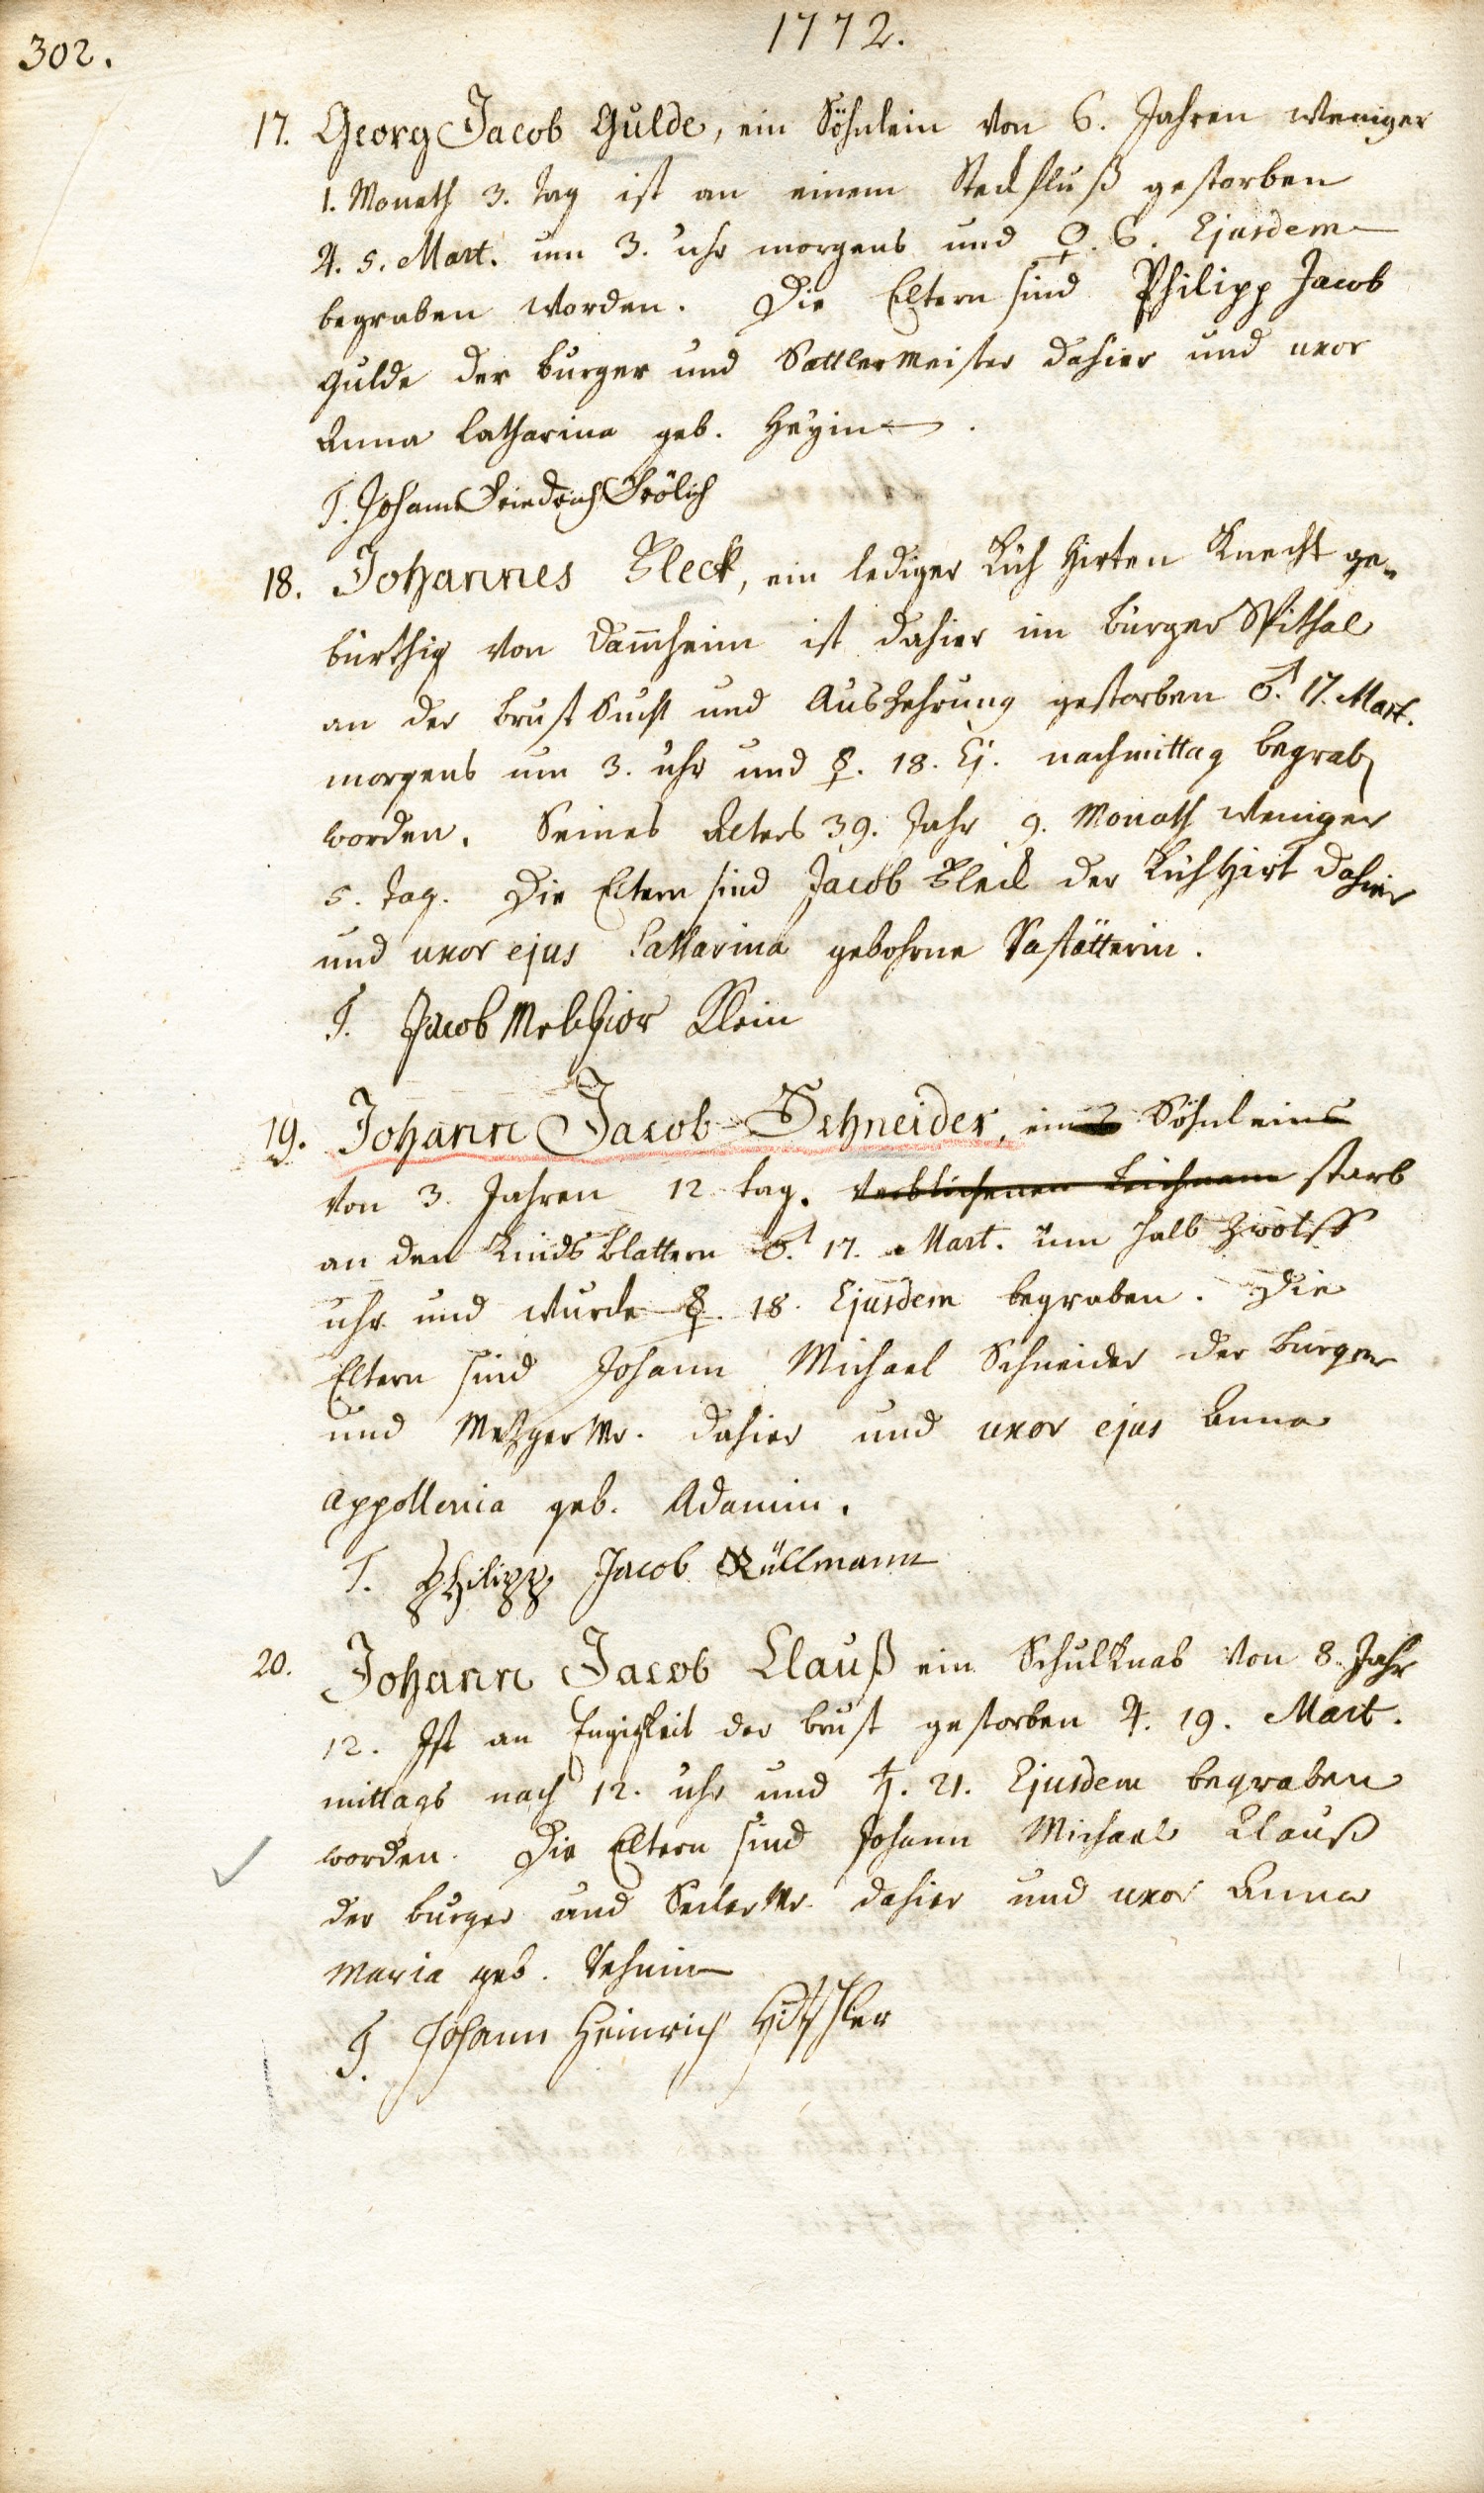 302.
1772.
17. Georg Jacob Gulde, ein Söhnlein von 6. Jahren weniger
1. Monath 3. Tag ist an einem Steckfluß gestorben
♃. 5. Mart. um 3. uhr morgens und ♀. 6. Ejusdem
begraben worden. Die Eltern sind Philipp Jacob
Gulde der burger und Sattlermeister dahier und uxor
Anna Catharina geb. Heyin.
T. Johann Friedrich Frölich
18. Johannes Bleck, ein lediger Küh Hirten Knecht ge-
bürthig von Dam̄heim ist dahier im burger Spithal
an der brust Sucht und Auszehrung gestorben ♂. 17. Mart.
morgens um 3. uhr und ☿. 18. Ej. nachmittag begrab
worden. Seines Alters 39. Jahr 9. Monath weniger
5. Tag. Die Eltern sind Jacob Bleck der Küh Hirt dahier
und uxor ejus Catharina gebohrne
T. Jacob Melchior Klein
19. Johann Jacob Schneider, eines Söhnleins
von 3. Jahren 12 tag. verblichenen Leichnam starb
an den Kinds blattern ♂. 17. Mart. um halb zwölff
uhr und wurde ☿. 18. Ejusdem begraben. Die
Eltern sind Johann Michael Schneider der burger
und Metzger Mr. dahier und uxor ejus Anna
Appollonia geb. Adamin.
T. Philipp Jacob Rüllmann
20. Johann Jacob Clauß ein Schulknab von 8. Jahr
12. Ist an Engigkeit der brust gestorben ♃. 19. Mart.
mittags nach 12. uhr und ♄. 21. Ejusdem begraben
worden. Die Eltern sind Johann Michael Clauß
der burger und Seiler Mr. dahier und uxor Anna
Maria geb.
T. Johann Heinrich